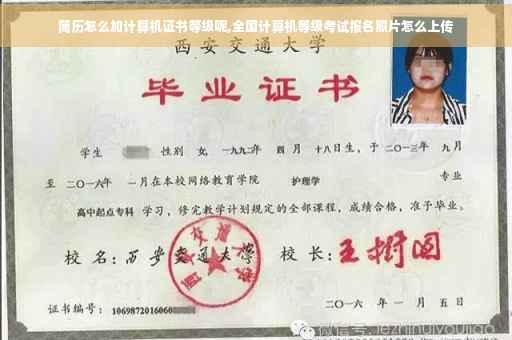 简历怎么加计算机证书等级呢,全国计算机等级考试报名照片怎么上传
西安交通大学
毕业证书
学生 性别 女, 一九九二年 四月 十八日生, 于 二〇一三年 九月
至 二〇一六年 一月在本校网络教育学院 护理学 专业
高中起点专科 学习, 修完教学计划规定的全部课程, 成绩合格, 准予毕业。
校名: 西安交通大学 校长: 王树国
西安交通大学
证书编号: 1069872016060
二〇一六年一月五日
微信号: jezhihuiyoujiao